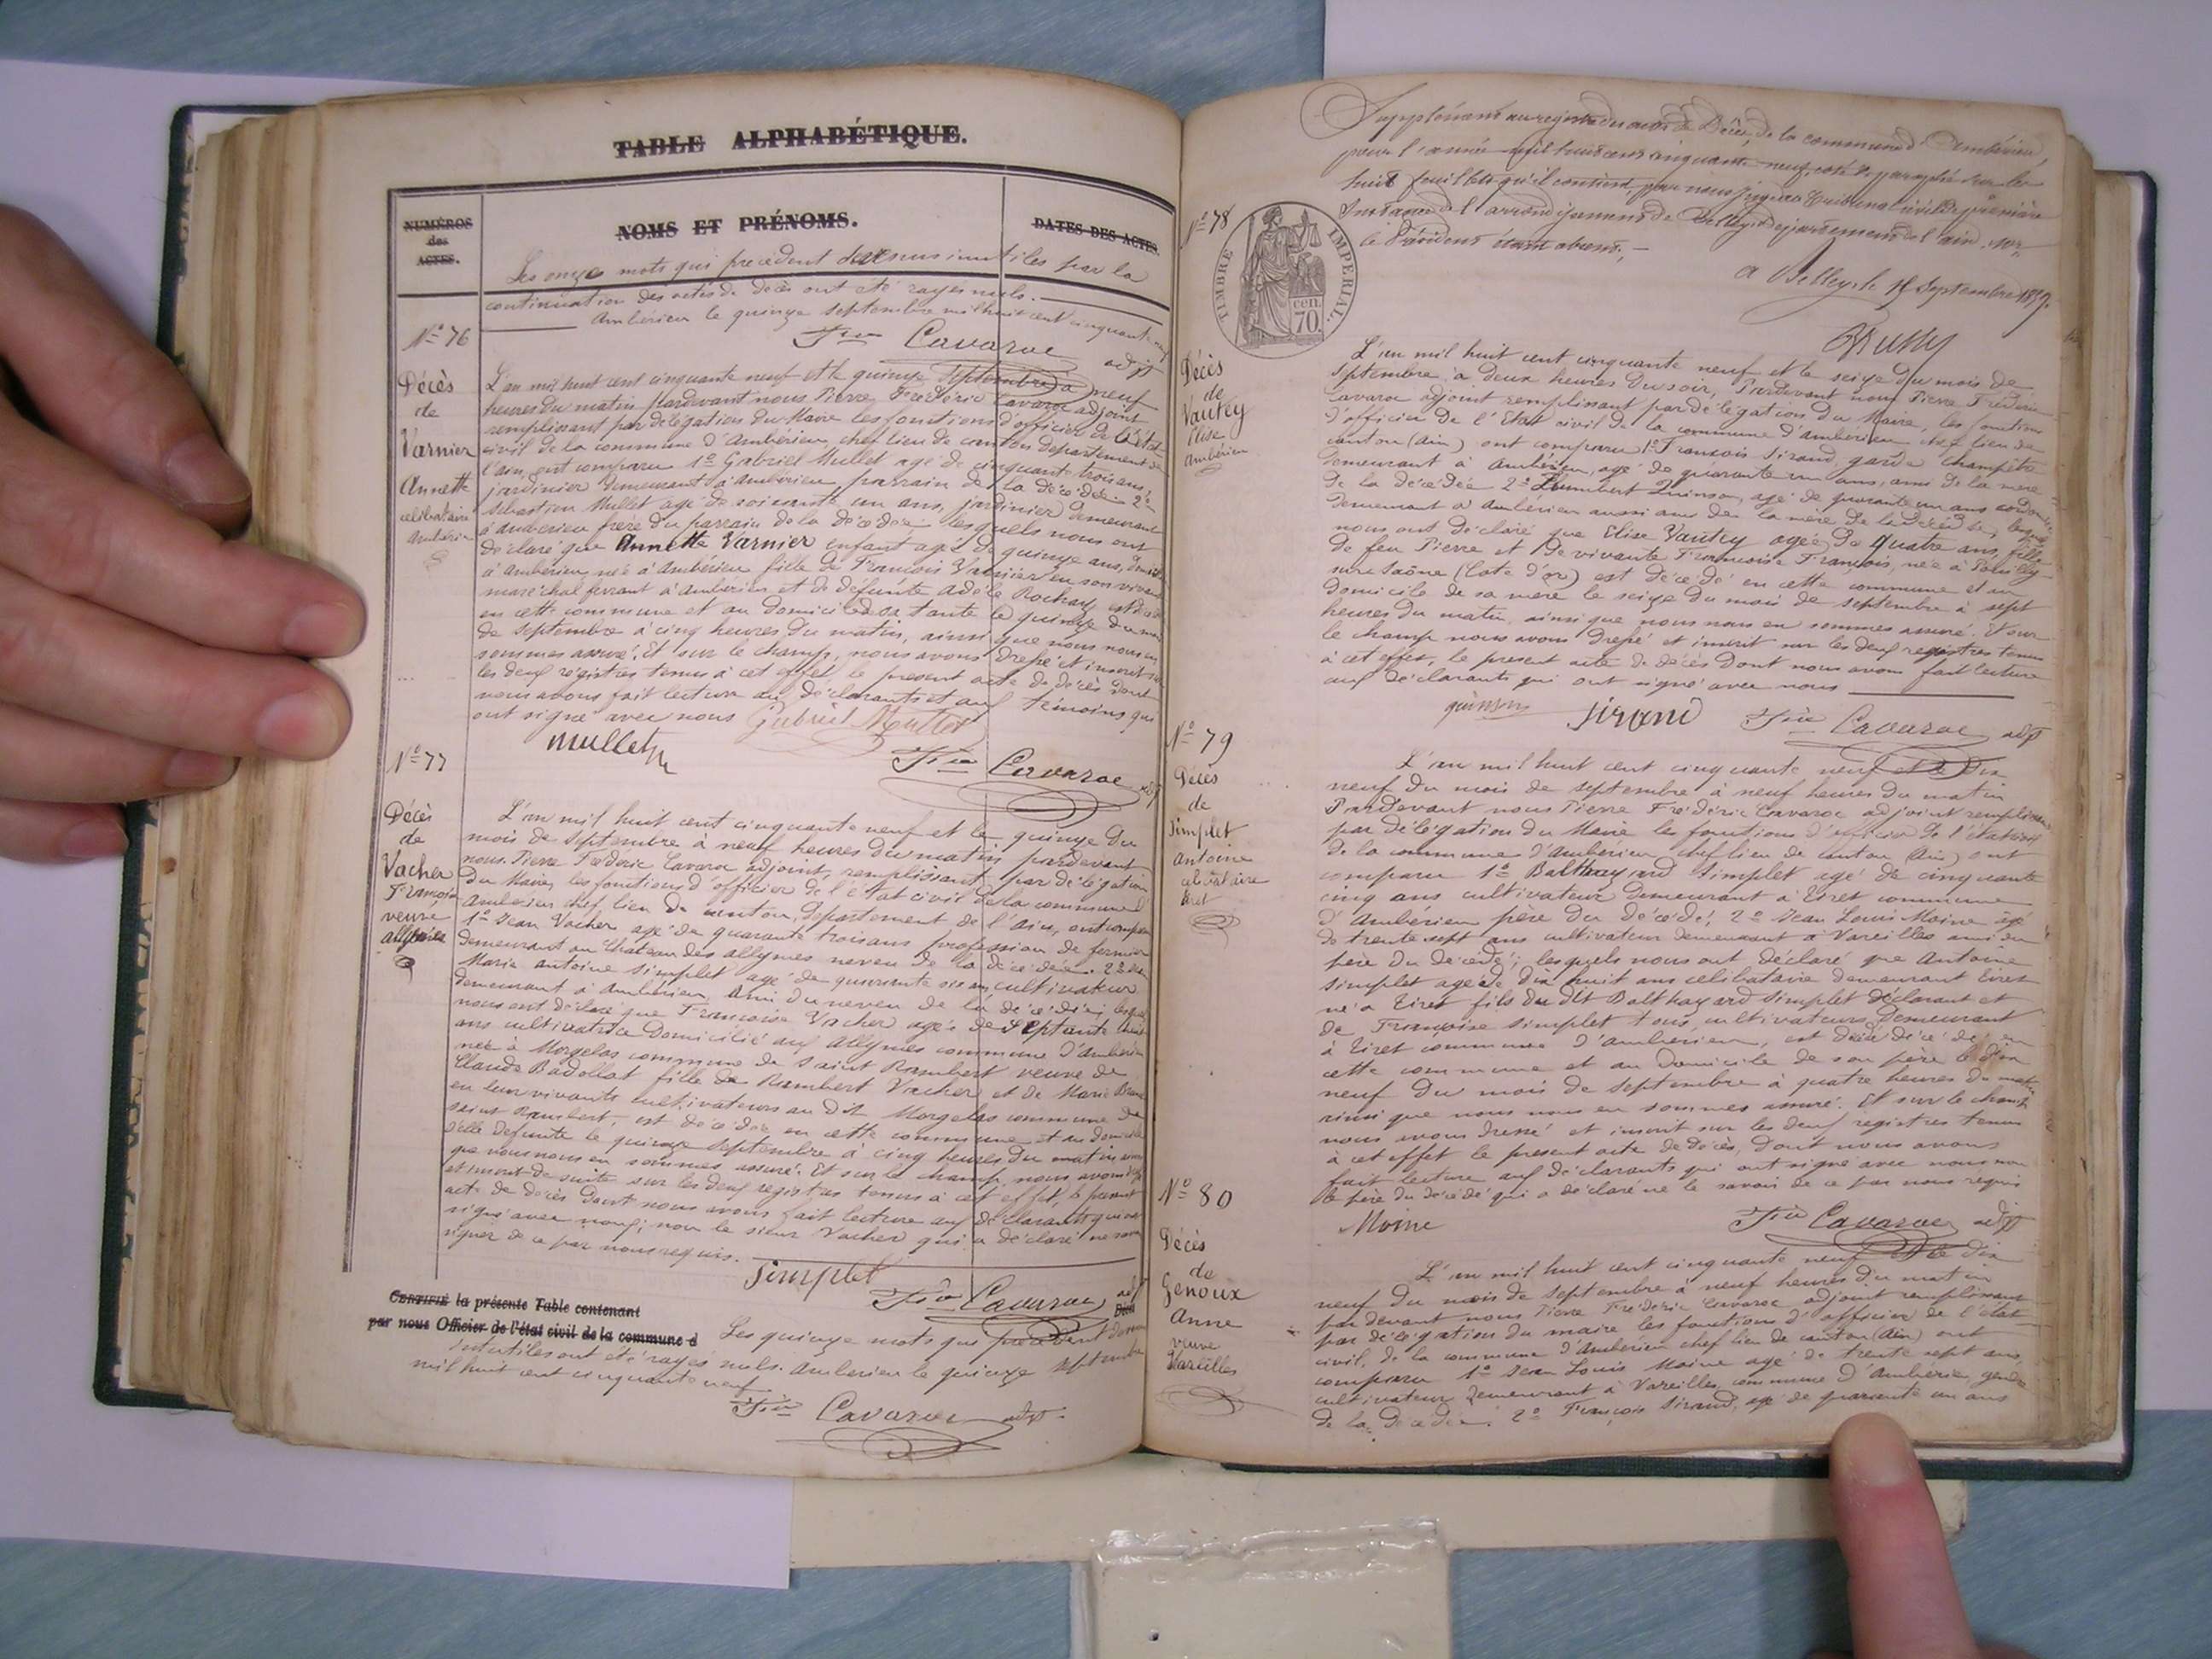 TABLE ALPHABÉTIQUE.
NUMÉROS
des
ACTES.
NOMS ET PRÉNOMS.
DATES DES ACTES.
Les onze mots qui precedent devenus inutiles par la
continuation des actes de décès ont été rayés nuls.
Ambérieu le quinze septembre mil huit cent cinquante
Fric Cavaroc adjt
N° 76
Décès
de
Varnier
Annette
celibataire
Ambérieu
L'an mil huit cent cinquante neuf et le quinze septembre à neuf
heures du matin pardevant nous Pierre Frédéric Cavaroc adjoint
remplissant par délégation du Maire les fonctions d'officier de l'état
civil de la commune d'Ambérieu chef lieu de canton département de
l'ain, ont comparu 1° Gabriel Mullet agé de cinquante trois ans,
jardinier demeurant à ambérieu, parrain de la décédée 2°
Sébastien Mullet agé de soixante un ans, jardinier demeurant
à ambérieu frère du parrain de la décédée lesquels nous ont
déclaré que Annette Varnier enfant agée de quinze ans,
à ambérieu, née à ambérieu fille de François Varnier en son vivant
maréchal ferrant à ambérieu et de défunte Adèle Rochay est
en cette commune et au domicile de sa tante le quinze du mois
de septembre à cinq heures du matin, ainsi que nous nous en
sommes assuré. Et sur le champ, nous avons drepé et inscrit sur
les deux régistres tenus à cet effet le present acte de décès dont
nous avons fait lecture aux déclarants et aux témoins qui
ont signé avec nous Gabriel Mullet
mullet
Fric Cavaroc adjt
N° 77
Décès
de
Vacher
Françoise
veuve
allymes
L'an mil huit cent cinquante neuf et le quinze du
mois de septembre à neuf heures du matin pardevant
nous Pierre Frédéric Cavaroc adjoint, remplissant par délégation
du Maire, les fonctions d'officier de l'état civil de la commune d'
ambérieu chef lieu de canton, département de l'ain, ont comparu
1° Jean Vacher agé de quarante trois ans profession de fermier
demeurant au chateau des allymes neveu de la décédée. 2°
Marie antoine simplet agé de quarante six ans cultivateur
demeurant à ambérieu, ami du neveu de la décédée, lesquels
nous ont déclaré que Françoise Vacher agée de septante
ans cultivatrice domicilié aux allymes commune d'ambérieu
née à Morgelas commune de Saint Rambert veuve de
Claude Badollat fille de Rambert Vacher et de Marie
en leur vivants cultivateurs au dit Morgelas commune de
saint Rambert, est décédée en cette commune et au domicile
d'elle défunte le quinze septembre à cinq heures du matin
que nous nous en sommes assuré. Et sur le champ, nous avons
et inscrit de suite sur les deux registres tenus à cet effet, le présent
acte de décès dont nous avons fait lecture aux déclarants qui ont
signé avec nous, non le sieur Vacher qui a déclaré ne savoir
signer de ce par nous requis.
Simplet
Fric Cavaroc adjt
CERTIFIÉ la présente Table contenant
par nous Officier de l'état civil de la commune d
Les quinze mots qui precedent
inutiles ont été rayés nuls. Ambérieu le quinze septembre
mil huit cent cinquante neuf
Fric Cavaroc adjt
Supplément au registre des actes de Décès de la commune d'Ambérieu,
pour l'année mil huit cent cinquante neuf, coté & paraphé sur les
huit feuillets qu'il contient, par nous Juge au tribunal civil de première
Instance de l'arrondissement de Belley, département de l'ain,
le Président étant absent,
a Belley, le 15 Septembre 1859.
TIMBRE IMPERIAL
cen.
70.
N° 78
Décès
de
Vautey
Elise
ambérieu
L'an mil huit cent cinquante neuf et le seize du mois de
septembre à deux heures du soir, Pardevant nous Pierre Frédéric
Cavaroc adjoint remplissant par délégation du Maire, les fonctions
d'officier de l'Etat civil de la commune d'ambérieu chef lieu de
canton (ain) ont comparu 1° François Sirand, garde champêtre
demeurant à Ambérieu, agé de quarante un ans, ami de la mère
de la décédée 2° Humbert Quinson, agé de quarante un ans
demeurant à Ambérieu aussi ami de la mère de la décédée, lesquels
nous ont déclaré que Elise Vautey agée de quatre ans, fille
de feu Pierre et de vivante Françoise François, née à Pouilly
sur Saône (Cote d'or) est décédé en cette commune et au
domicile de sa mère le seize du mois de septembre à sept
heures du matin, ainsi que nous nous en sommes assuré. Et sur
le champ nous avons drepé et inscrit sur les deux registres tenus
à cet effet, le present acte de décès dont nous avons fait lecture
aux déclarants qui ont signé avec nous
quinson Sirand Fric Cavaroc adjt
N° 79
Décès
de
Simplet
antoine
celibataire
tiret
L'an mil huit cent cinquante neuf et le dix
neuf du mois de septembre à neuf heures du matin
Pardevant nous Pierre Frédéric Cavaroc adjoint remplissant
par délégation du Maire les fonctions d'officier de l'état civil
de la commune d'Ambérieu chef lieu de canton (Ain) ont
comparu 1° Balthazard Simplet agé de cinquante
cinq ans cultivateur demeurant à Tiret commune
d'Ambérieu père du décédé, 2° Jean Louis Moine agé
de trente sept ans cultivateur demeurant à Vareilles ami du
père du décédé, lesquels nous ont déclaré que Antoine
simplet agé de dix huit ans célibataire demeurant tiret
né à Tiret fils du dit Balthazard simplet déclarant et
de Françoise simplet tous cultivateurs demeurant
à tiret commune d'ambérieu, est décédé en
cette commune et au domicile de son père le dix
neuf du mois de septembre à quatre heures du matin
ainsi que nous nous en sommes assuré. Et sur le champ
nous avons dressé et inscrit sur les deux registres tenus
à cet effet le present acte de décès, dont nous avons
fait lecture aux déclarants qui ont signé avec nous non
le père du décédé qui a déclaré ne le savoir de ce par nous requis
Moine
Fric Cavaroc adjt
N° 80
Décès
de
Genoux
Anne
veuve
Vareilles
L'an mil huit cent cinquante neuf et le dix
neuf du mois de septembre à neuf heures du matin
par devant nous Pierre Frédéric Cavaroc adjoint remplissant
par délégation du maire les fonctions d'officier de l'état
civil, de la commune d'Ambérieu chef lieu de canton (Ain) ont
comparu 1° Jean Louis Moine agé de trente sept ans,
cultivateur demeurant à Vareilles commune d'Ambérieu, gendre
de la décédée. 2° François Sirand, agé de quarante un ans